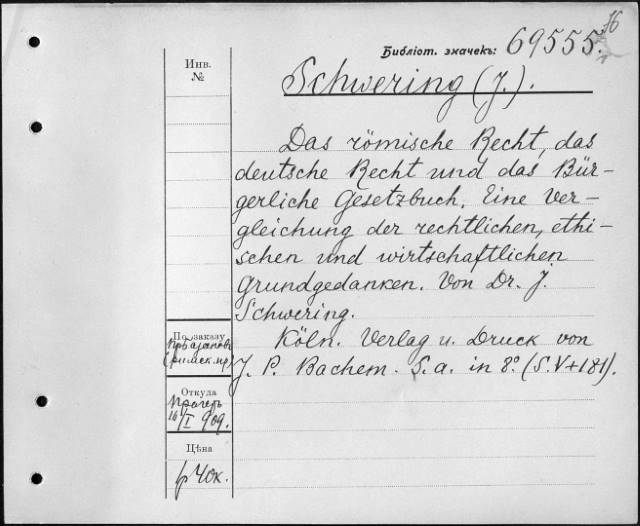 16
Библіот. значекъ: 69555.
Инв.
№
Schwering (J.).
Das römische Recht, das
deutsche Recht und das Bür-
gerliche Gesetzbuch. Eine Ver-
gleichung der rechtlichen, ethi-
schen und wirtschaftlichen
Grundgedanken. Von Dr. J.
Schwering.
Köln. Verlag u. Druck von
J. P. Bachem. S. a. in 8º. (S. V+181).
По заказу
(римск. пр)
Откуда
16/I 909.
Цѣна
40к.